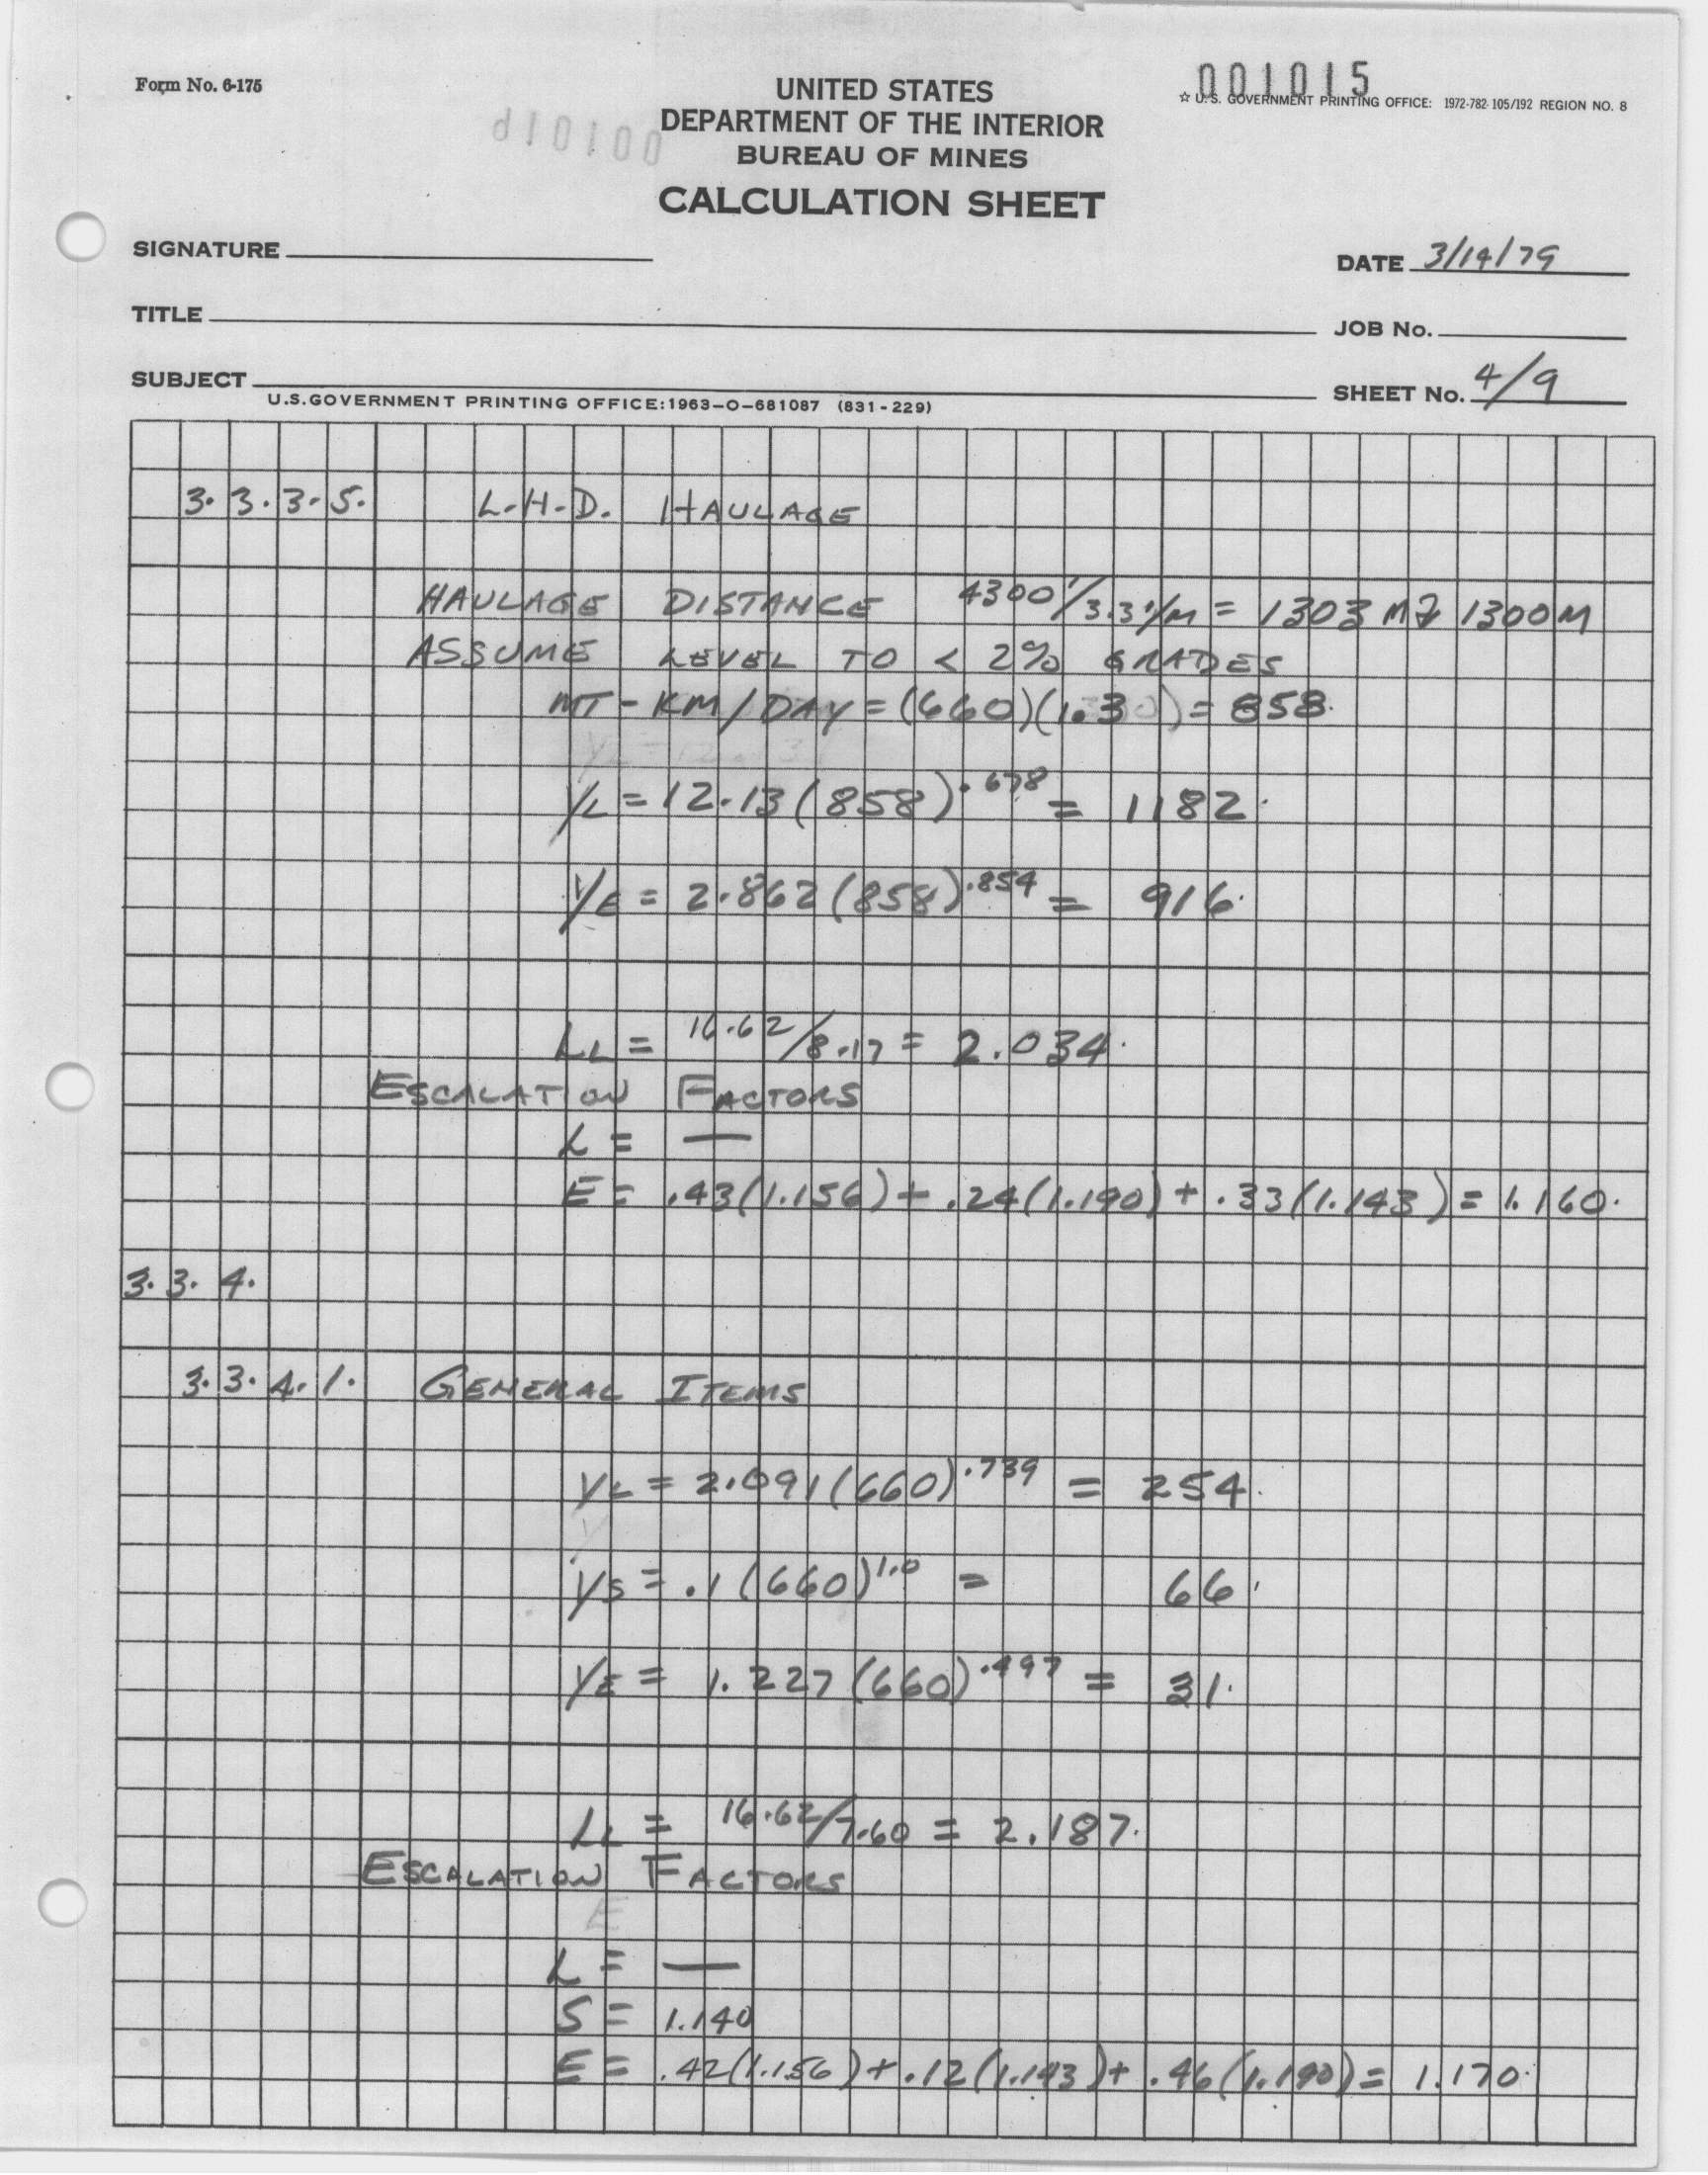 Form No. 6-175
001015
☆ U.S. GOVERNMENT PRINTING OFFICE: 1972-782-105/192 REGION NO. 8
UNITED STATES
DEPARTMENT OF THE INTERIOR
BUREAU OF MINES
CALCULATION SHEET
SIGNATURE
DATE 3/14/79
TITLE
JOB No.
SUBJECT
SHEET No. 4/9
U.S.GOVERNMENT PRINTING OFFICE:1963-O-681087 (831-229)
3.3.3.5. L.H.D. HAULAGE
HAULAGE DISTANCE 4300'/3.3'/M = 1303 M 1300M
ASSUME LEVEL TO < 2% GRADES
MT-KM/DAY = (660)(1.30) = 858.
YL = 12.13(858).678 = 1182.
YE = 2.862(858).854 = 916.
LL = 16.62/8.17 = 2.034.
ESCALATION FACTORS
L = —
E = .43(1.156) + .24(1.190) + .33(1.143) = 1.160.
3.3.4.
3.3.4.1. GENERAL ITEMS
YL = 2.091(660).739 = 254.
YS = .1(660)1.0 = 66.
YE = 1.227(660).497 = 31.
LL = 16.62/7.60 = 2.187.
ESCALATION FACTORS
L = —
S = 1.140
E = .42(1.156) + .12(1.143) + .46(1.190) = 1.170.